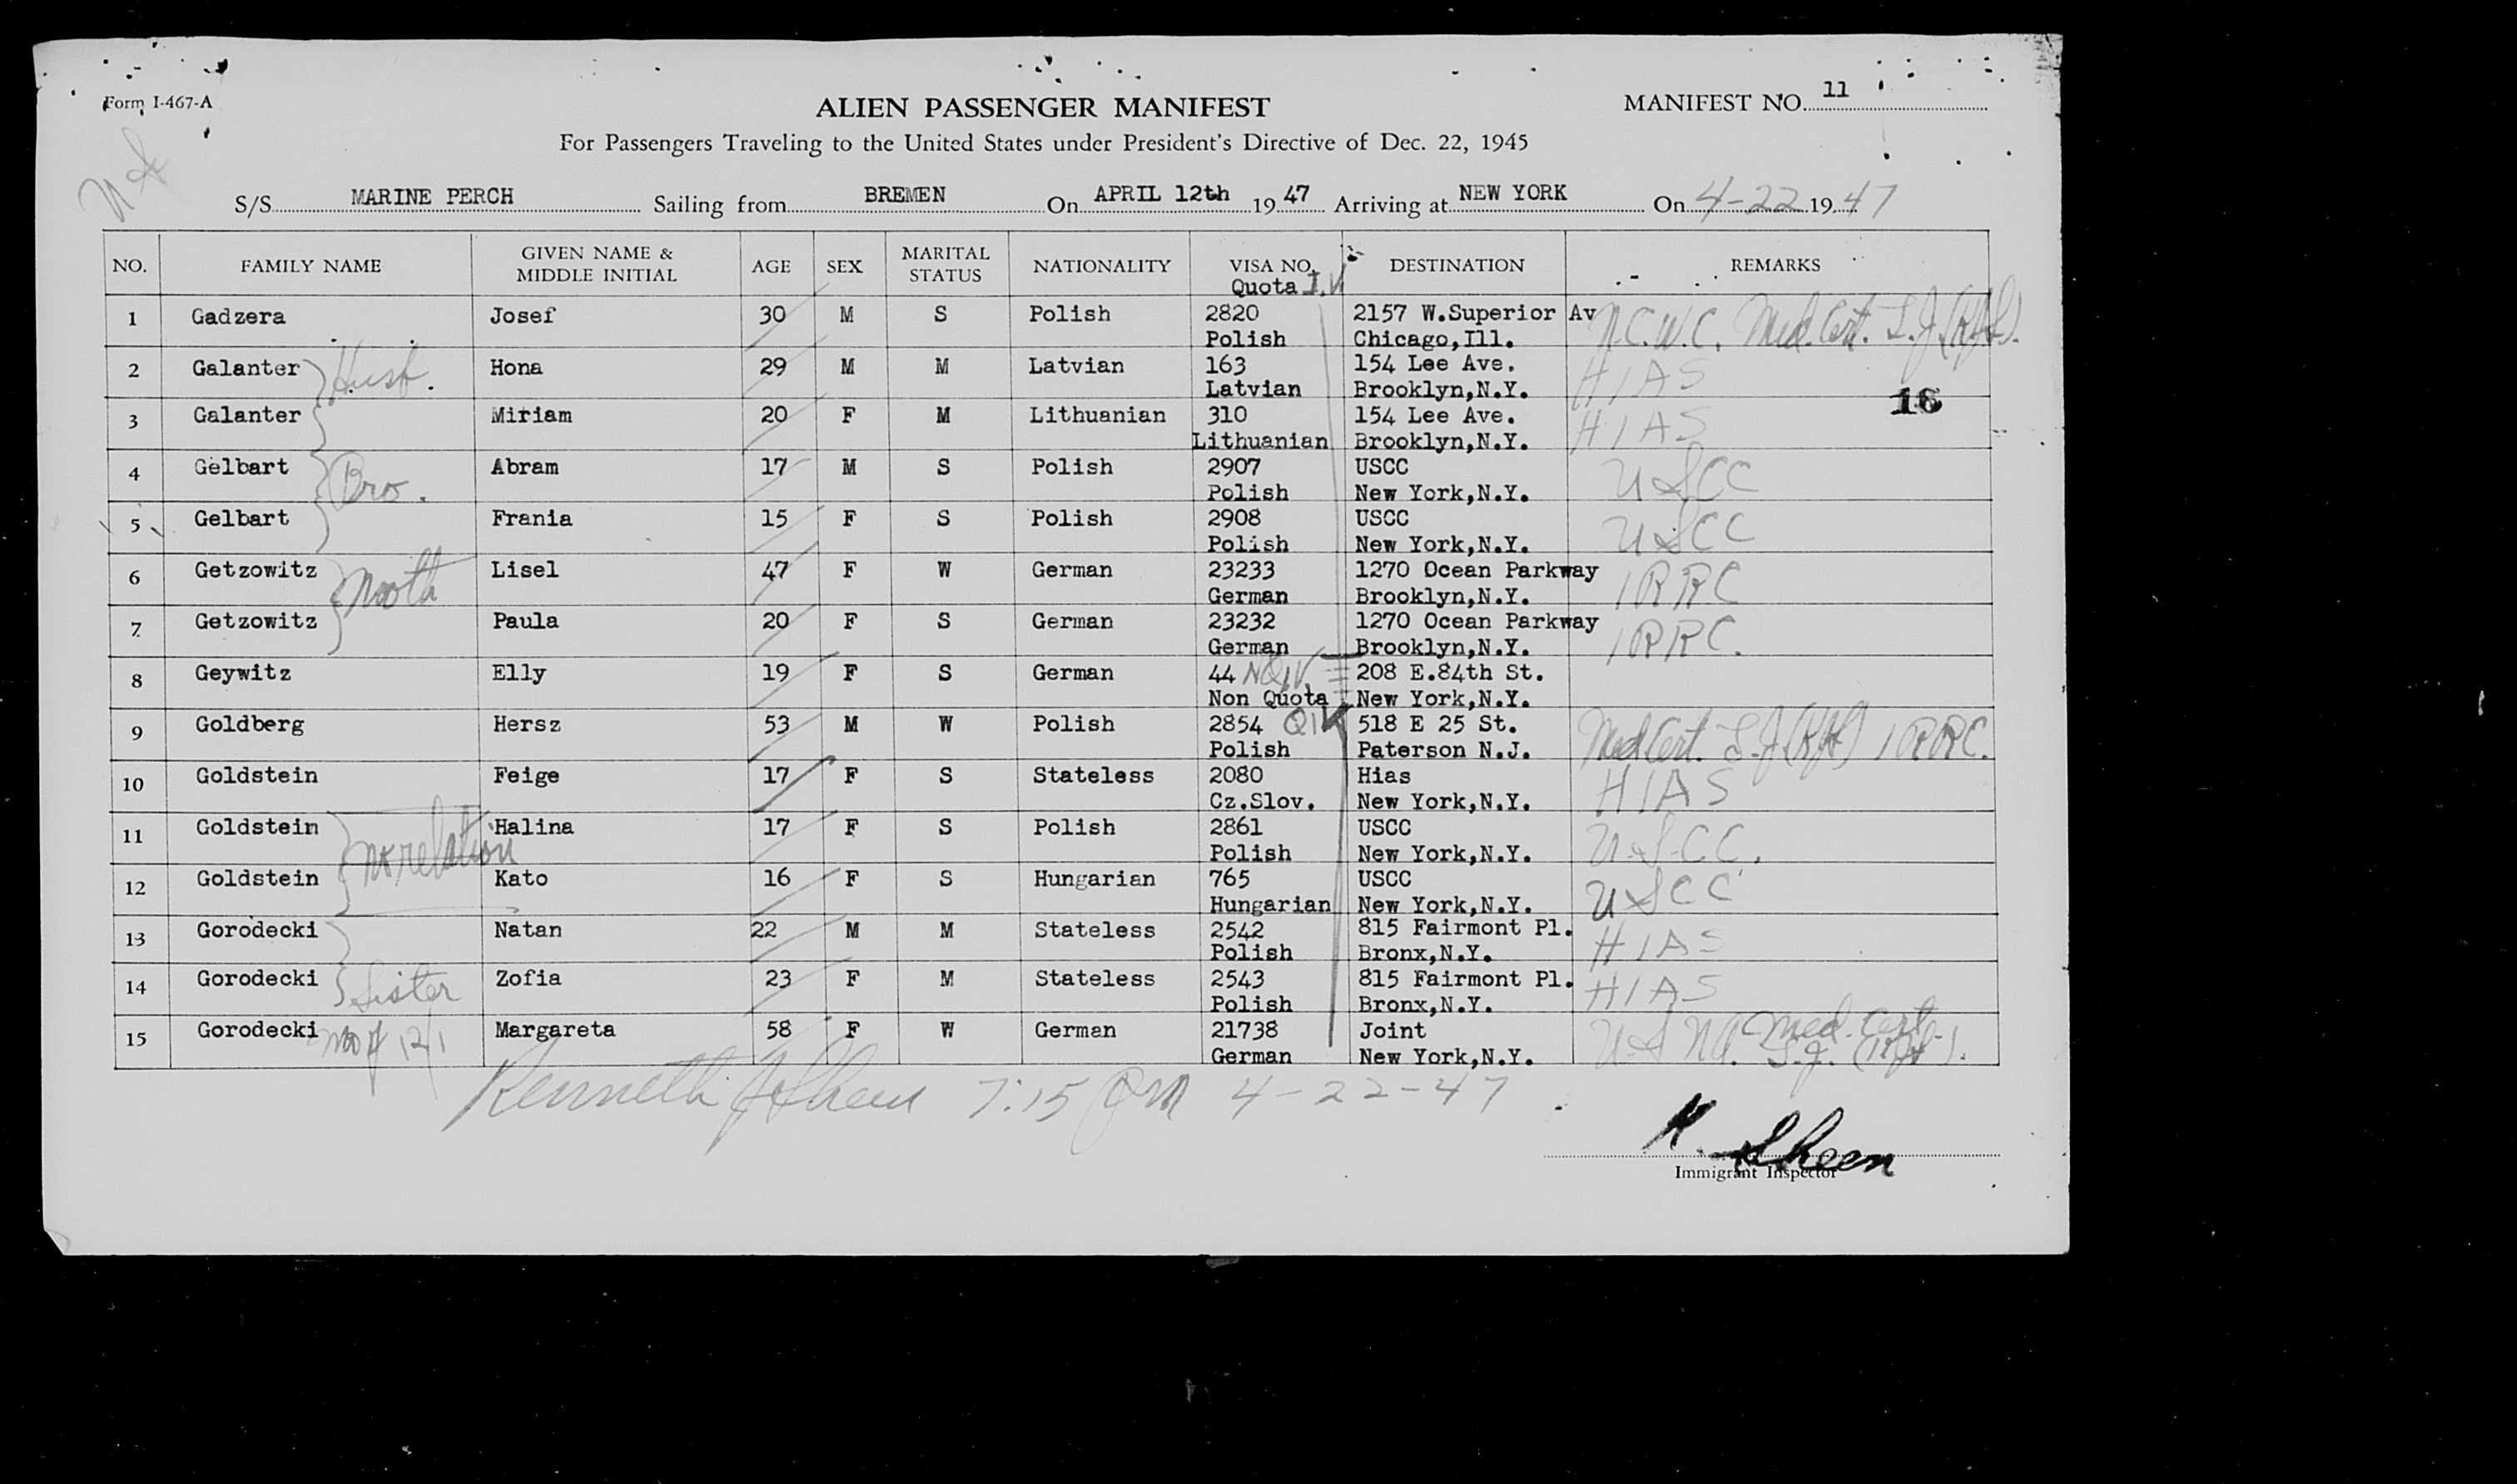 Form I-467-A
ALIEN PASSENGER MANIFEST
MANIFEST NO. 11
For Passengers Traveling to the United States under President's Directive of Dec. 22, 1945
S/S MARINE PERCH Sailing from BREMEN On APRIL 12th 19 47 Arriving at NEW YORK On 4-22 19 47
NO. FAMILY NAME GIVEN NAME & MIDDLE INITIAL AGE SEX MARITAL STATUS NATIONALITY VISA NO. Quota I.V DESTINATION REMARKS
1 Gadzera Josef 30 M S Polish 2820 2157 W.Superior Av N.C.W.C. Med. Cert.
Polish Chicago,Ill.
2 Galanter Husb. Hona 29 M M Latvian 163 154 Lee Ave. HIAS
Latvian Brooklyn,N.Y.
16
3 Galanter Miriam 20 F M Lithuanian 310 154 Lee Ave. HIAS
Lithuanian Brooklyn,N.Y.
4 Gelbart Bro. Abram 17 M S Polish 2907 USCC USCC
Polish New York,N.Y.
5 Gelbart Frania 15 F S Polish 2908 USCC USCC
Polish New York,N.Y.
6 Getzowitz Moth Lisel 47 F W German 23233 1270 Ocean Parkway IRRC
German Brooklyn,N.Y.
7 Getzowitz Paula 20 F S German 23232 1270 Ocean Parkway IRRC.
German Brooklyn,N.Y.
8 Geywitz Elly 19 F S German 44 NQIV 208 E.84th St.
Non Quota New York,N.Y.
9 Goldberg Hersz 53 M W Polish 2854 QIV 518 E 25 St. Med Cert. IRRC.
Polish Paterson N.J.
10 Goldstein Feige 17 F S Stateless 2080 Hias HIAS
Cz.Slov. New York,N.Y.
11 Goldstein no relation Halina 17 F S Polish 2861 USCC U.S.C.C.
Polish New York,N.Y.
12 Goldstein Kato 16 F S Hungarian 765 USCC USCC
Hungarian New York,N.Y.
13 Gorodecki Natan 22 M M Stateless 2542 815 Fairmont Pl. HIAS
Polish Bronx,N.Y.
14 Gorodecki Sister Zofia 23 F M Stateless 2543 815 Fairmont Pl. HIAS
Polish Bronx,N.Y.
15 Gorodecki Margareta 58 F W German 21738 Joint Med. Cert.
German New York,N.Y.
Kenneth J Sheen 7:15 PM 4-22-47
K. Sheen
Immigrant Inspector